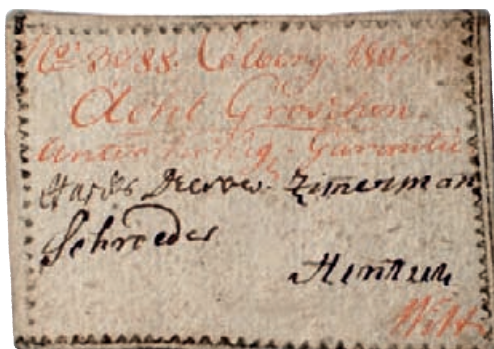 No. 3088. Colberg 1807
Acht Groschen
unter Königl. Garantie
Dresow. Zimerman
Schroeder
Hentsch
Witt